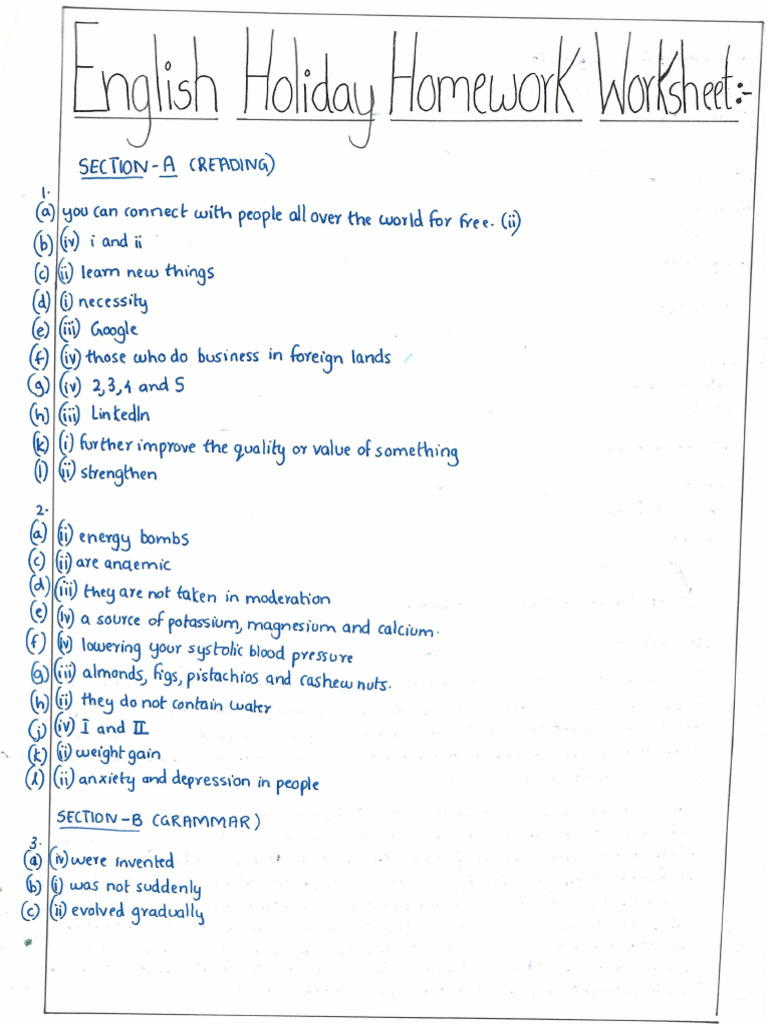 English Holiday Homework Worksheet:-
SECTION-A (READING)
1.
(a) you can connect with people all over the world for free. (ii)
(b) (iv) i and ii
(c) (ii) learn new things
(d) (i) necessity
(e) (iii) Google
(f) (iv) those who do business in foreign lands
(g) (iv) 2,3,4 and 5
(h) (iii) LinkedIn
(k) (i) further improve the quality or value of something
(l) (ii) strengthen
2.
(a) (ii) energy bombs
(c) (ii) are anaemic
(d) (iii) they are not taken in moderation
(e) (iv) a source of potassium, magnesium and calcium.
(f) (iv) lowering your systolic blood pressure
(g) (iii) almonds, figs, pistachios and cashew nuts.
(h) (ii) they do not contain water
(j) (iv) I and II
(k) (ii) weight gain
(l) (ii) anxiety and depression in people
SECTION-B (GRAMMAR)
3.
(a) (iv) were invented
(b) (i) was not suddenly
(c) (ii) evolved gradually